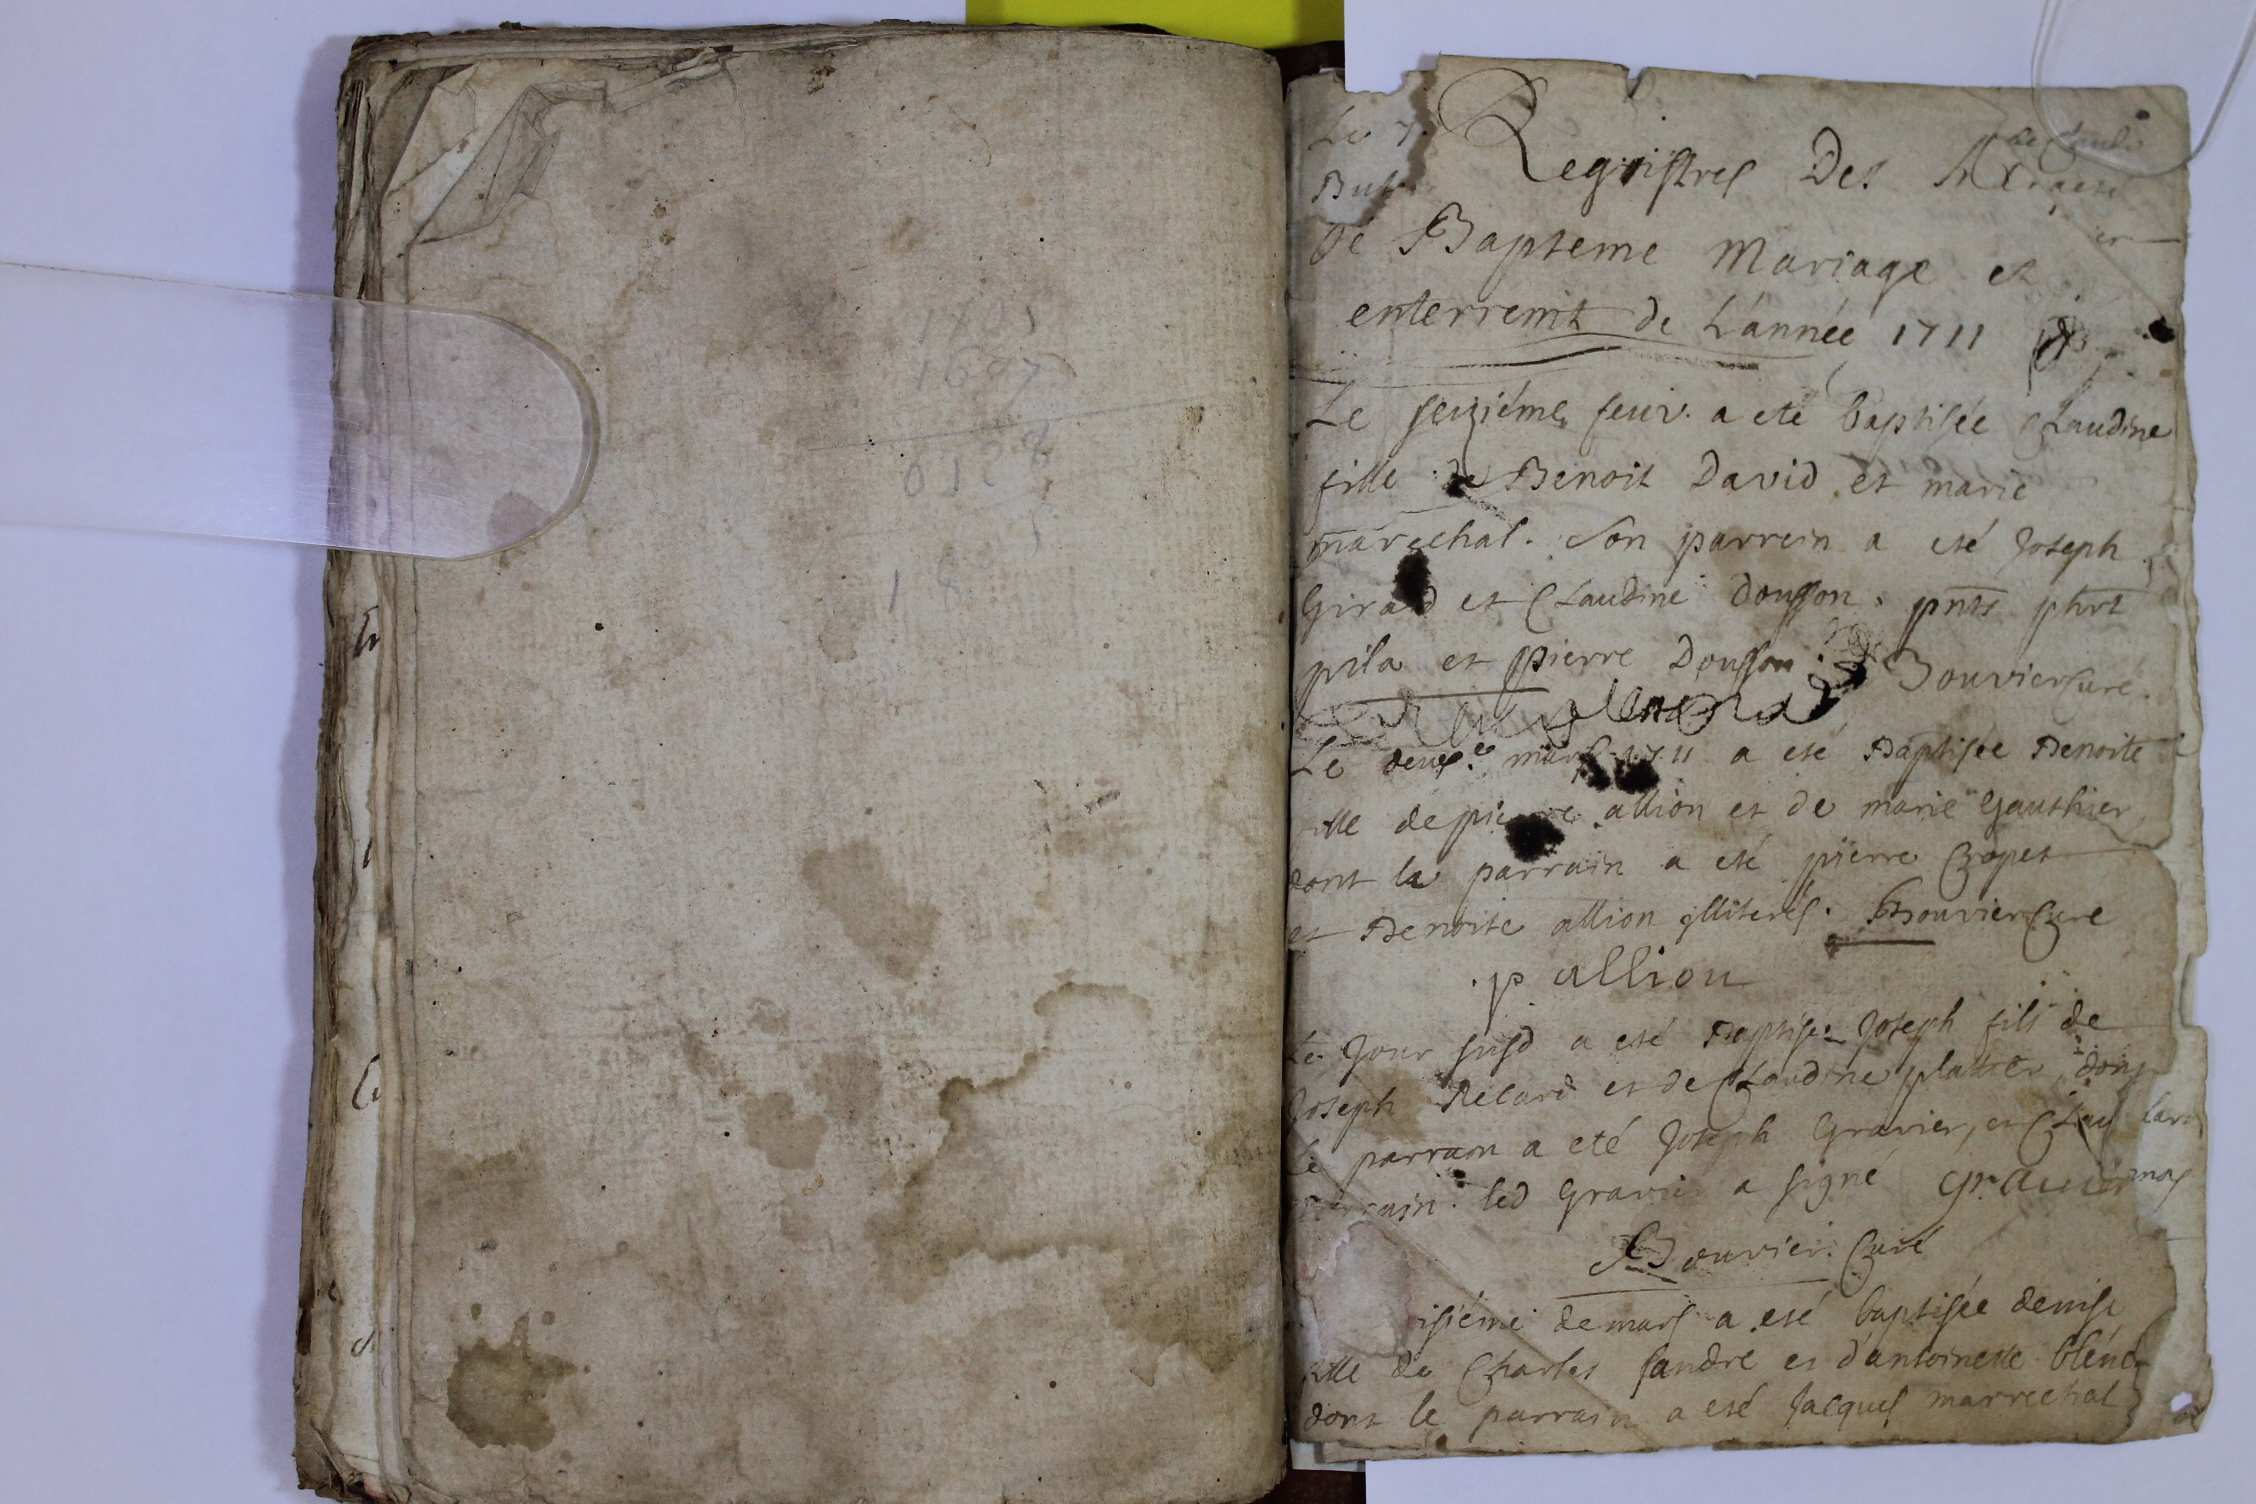 Le 7
Registres Des
De Bapteme Mariage et
enterremt de L'année 1711
Le seiziéme feur. a eté baptisée Claudine
fille de Benoit David et marie
marechal. Son parrein a eté Joseph
Girard et Claudine Dousson. pnts phrt
pila et pierre Dousson. Bouvier Curé.
Le deuxe. mars 1711 a eté Baptisée Benoite
fille de pierre allion et de marie Gauthier
dont le parrain a eté pierre
et Benoite allion illiterés. Bouvier Curé
p allion
Le Jour susd a eté Baptisé Joseph fils de
Joseph Recard et de Claudine platter dont
le parrain a eté Joseph Gravier, et
led Gravier a signé gravier
Bouvier. Curé
isiéme de mars a eté baptisée denise
fille de Charles fandre et d'antoinette
dont le parrain a eté Jacques marrechal